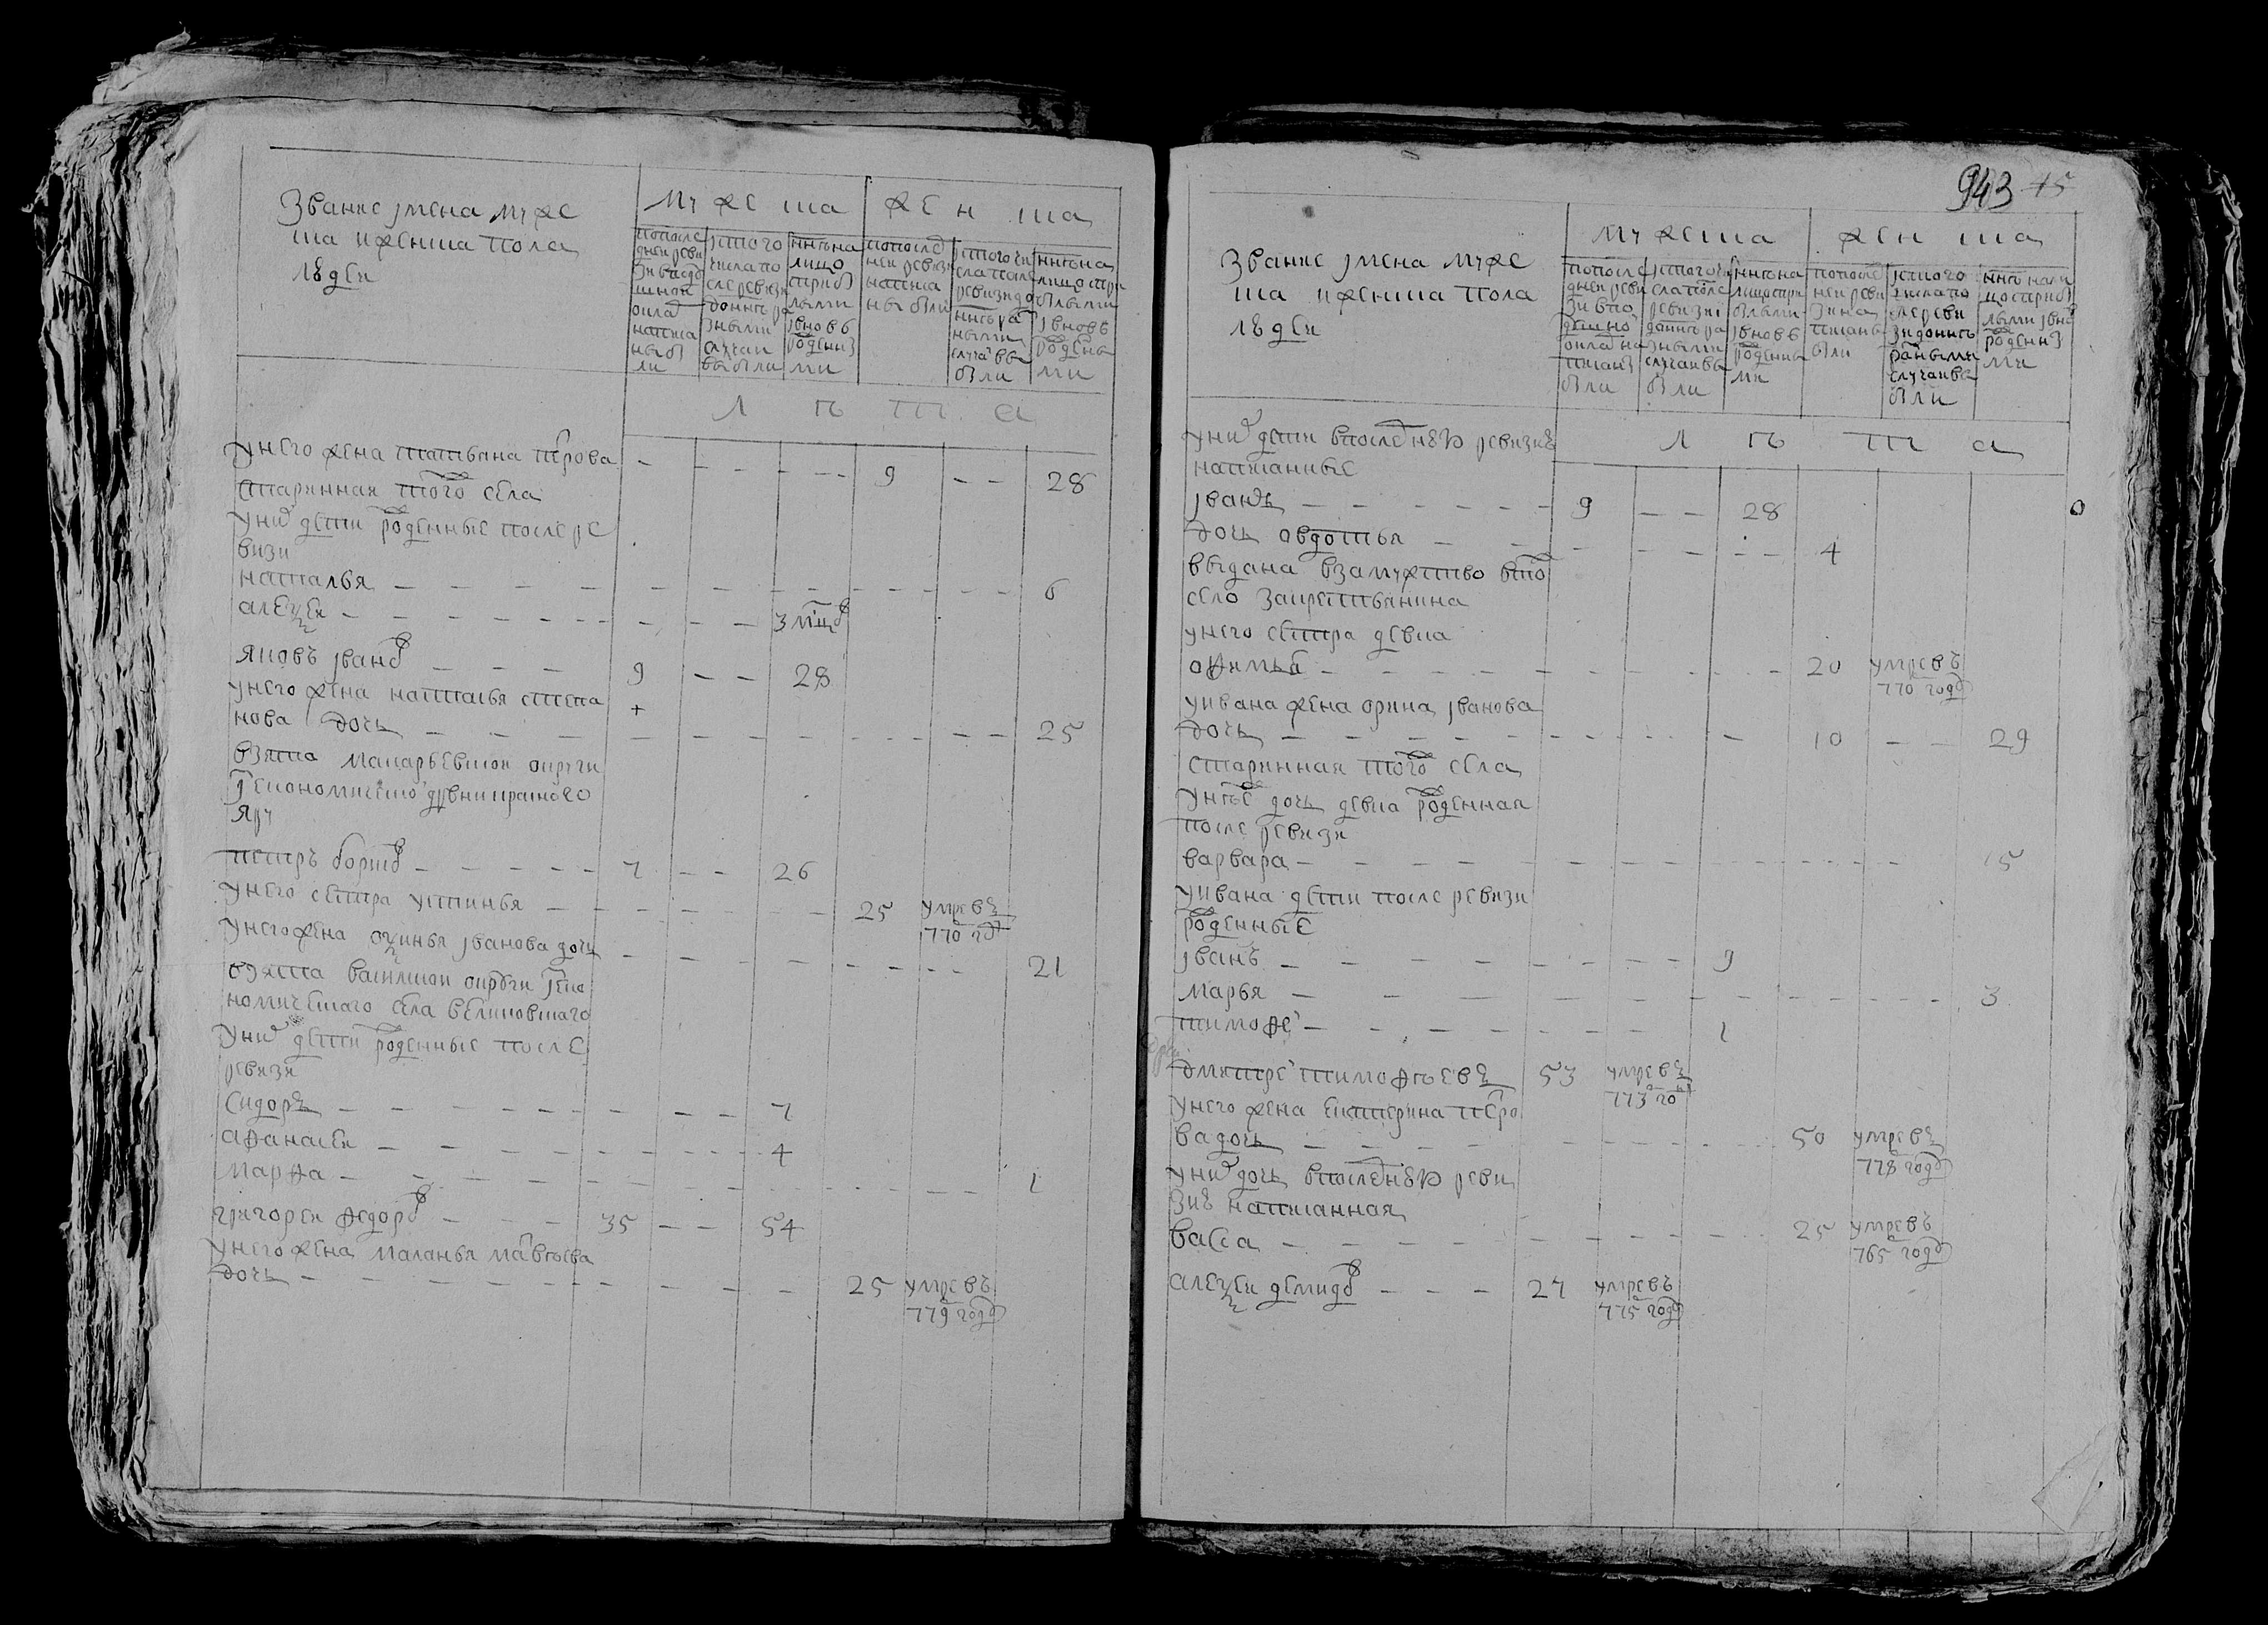 Звание імена муже
ска и женска пола
людеи
муже ска
жен ска
попосле
днеи реви
зи вподу
шнои
окла
написа
ны бы
ли
істого
числа по
сле ревизи
доннѣ ра
зными
случаи
выбыли
ннѣ на
лицо
прибы
лыми
івновь
рожденны
ми
попослед
неи ревизи
написа
ны были
істого чи
сла после
ревизи до
ннѣ ра
ными
случа вы
были
ннѣ на
лицо при
былыми
івновь
рождены
ми
л ѣ т а
унего жена татьяна петрова
- 9 - 28
старинная того села
уних дети рожденные после ре
визи
наталья - 6
алеѯеи - 3 мцов
яковъ іванов - 9 - 28
унего жена наталья степа
+
нова дочь - 25
взята макарьевскои округи
іекономическо дервни красного
яру
петръ борисов - 7 - 26
унего сестра устинья - 25 умре въ
770 год
унего жена оѯинья іванова дочь
- 21
взята васильскои округи іеко
номическаго села великовскаго
уних дети рожденные после
ревизи
сидоръ - 7
афанасеи - 4
марфа - 1
григореи федоров - 35 - 54
унего жена маланья матвѣева
дочь - 25 умре въ
779 годе
943 45
Звание імена муже
ска и женска пола
людеи
мужеска
жен ска
попосле
днеи реви
зи впо
душно
окла на
писаны
были
істого чи
сла посл
ревизиі
доннѣ ра
зными
случаи вы
были
ннѣ на
лицо при
былыми
івновь
рожденны
ми
попослед
неи реви
зи на
писаны
были
істого
числа по
сле реви
зи доннѣ
разными
случаи вы
были
ннѣ нали
цо прибы
лыми івно
рожденны
ми
л ѣ т а
уних дети впоследнею ревизию
написанные
іванъ - 9 - 28
дочь авдотья - 4
выдана взамужство вто
село закрестьянина
унего сестра девка
офимья - 20 умре въ
770 годе
уивана жена орина іванова
дочь - 10 - 29
старинная того села
унѣе дочь девка рожденная
после ревизи
варвара - 15
уивана дети после ревизи
рожденные
іванъ - 9
марья - 3
тимофе - 1
дмитре тимофѣевъ 53 умре въ
773 го
унего жена екатерина петро
ва дочь - 50 умре въ
778 годе
уних дочь впоследнею реви
зию написанная
васса - 25 умре въ
765 годе
алеѯеи демидов - 27 умре въ
775 годе